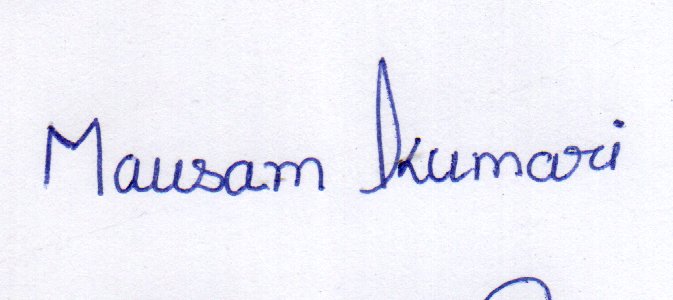 Mausam Kumari